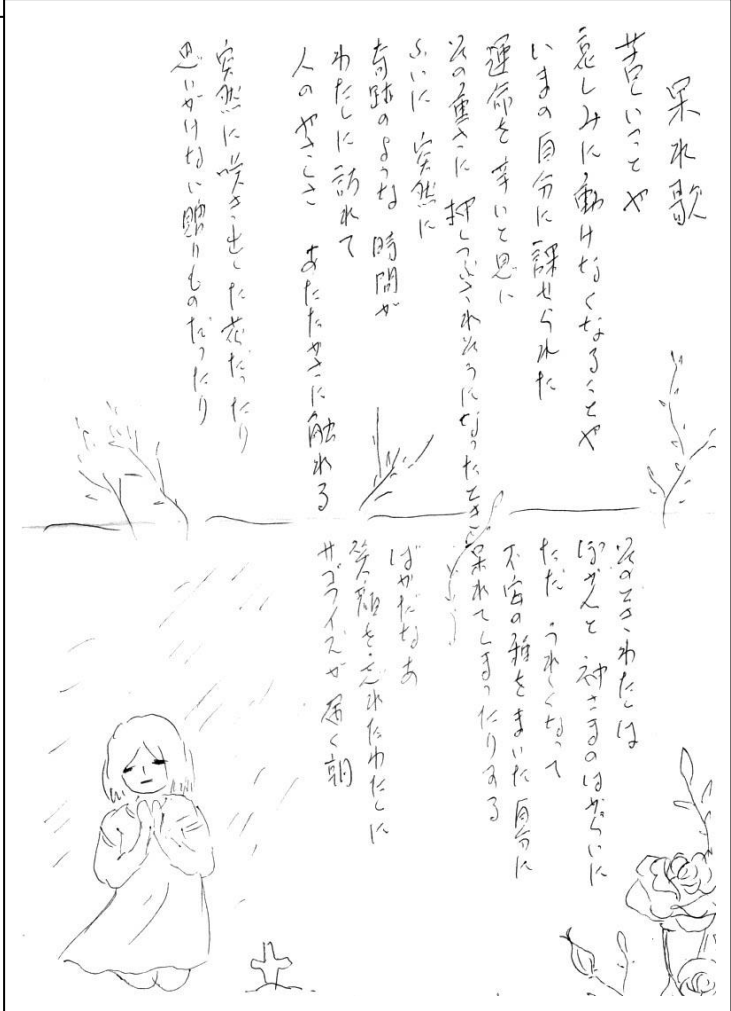 呆れ歌
苦しいことや
哀しみに動けなくなることや
いまの自分に課せられた
運命を辛いと思い
その重さに押しつぶされそうになったとき
ふいに 突然に
奇跡のような 時間が
わたしに訪れて
人のやさしさ あたたかさに触れる
突然に咲き出した花だったり
思いがけない贈りものだったり
そのときわたしは
ぽかんと 神さまのはからいに
ただ うれしくなって
不安の種をまいた自分に
呆れてしまったりする
ばかだなあ
笑顔を忘れたわたしに
サプライズが届く朝